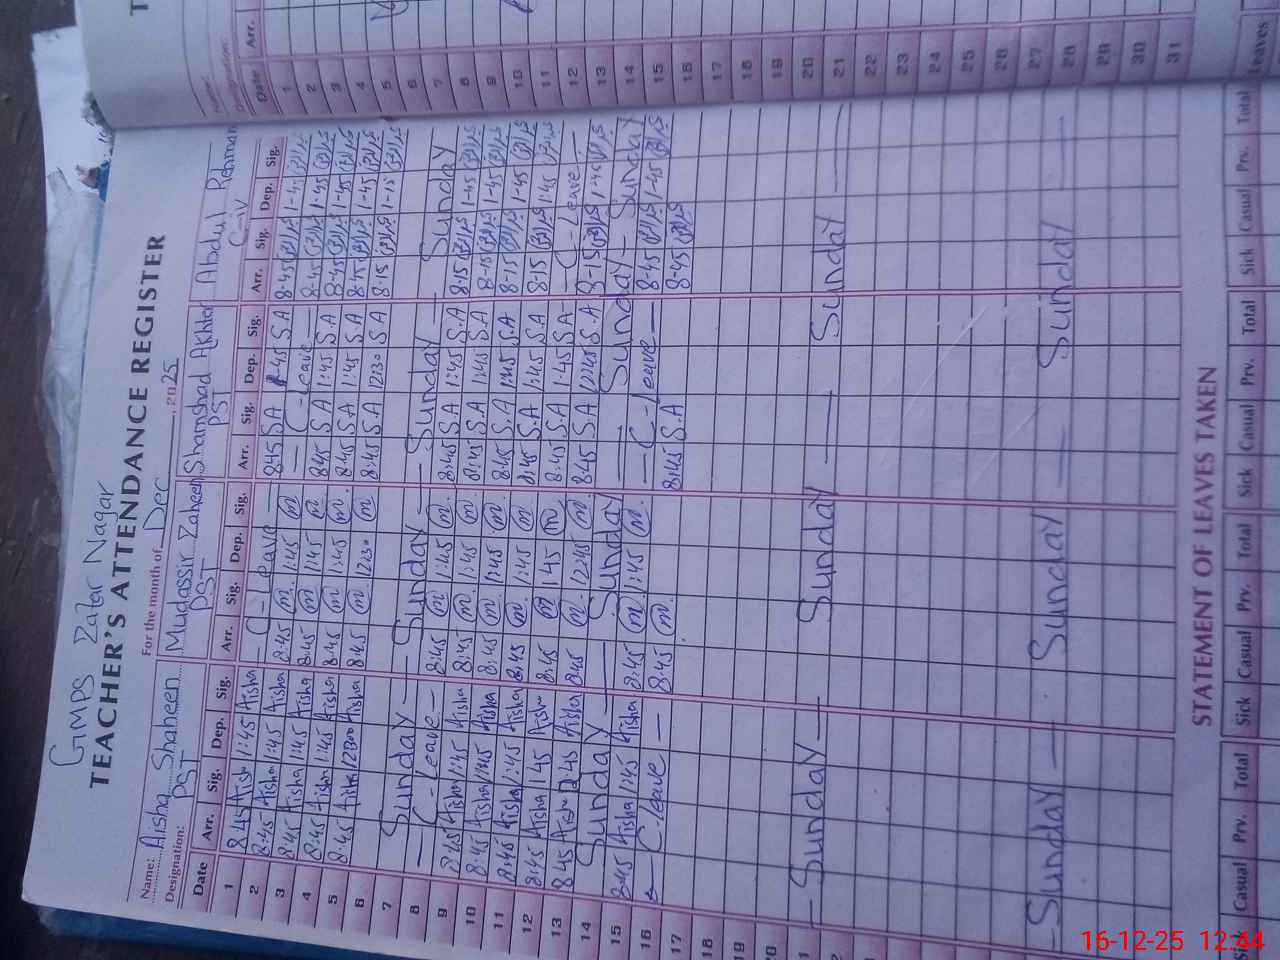 GMPS Zafar Nagar
TEACHER'S ATTENDANCE REGISTER
For the month of Dec 2025
Name: Aisha Shaheen Mudassir Zaheen Shamshad Akhter Abdul Rehman
Designation: PST PST PST C-iv
Date Arr. Sig. Dep. Sig. Arr. Sig. Dep. Sig. Arr. Sig. Dep. Sig. Arr. Sig. Dep. Sig.
1 8:45 Aisha 1:45 Aisha — C - Leave 8:45 S.A 1:45 S.A 8-45
2 8:45 Aisha 1:45 Aisha 8:45 m 1:45 m — C - Leave — 8-45 1-45
3 8:45 Aisha 1:45 Aisha 8:45 m 1:45 m 8:45 S.A 1:45 S.A 8-45 1-45
4 8:45 Aisha 1:45 Aisha 8:45 m 1:45 m 8:45 S.A 1:45 S.A 8-45 1-45
5 8:45 Aisha 12:30 Aisha 8:45 m 12:30 m 8:45 S.A 12:30 S.A 8-15 1-15
6
7 — Sunday — Sunday — Sunday — Sunday
8 — C - Leave — 8:45 m 1:45 m 8:45 S.A 1:45 S.A 8-15 1-45
9 8:45 Aisha 1:45 Aisha 8:45 m 1:45 m 8:45 S.A 1:45 S.A 8-15 1-45
10 8:45 Aisha 1:45 Aisha 8:45 m 1:45 m 8:45 S.A 1:45 S.A 8-15 1-45
11 8:45 Aisha 1:45 Aisha 8:45 m 1:45 m 8:45 S.A 1:45 S.A 8-15 1-45
12 8:45 Aisha 1:45 Aisha 8:45 m 1:45 m 8:45 S.A 1:45 S.A — C - Leave —
13 8:45 Aisha 12:45 Aisha 8:45 m 12:45 m 8:45 S.A 12:45 S.A 8-15 1-45
14 Sunday — Sunday — Sunday — Sunday
15 8:45 Aisha 1:45 Aisha 8:45 m 1:45 m — C - Leave — 8-45 1-45
16 — C leave — 8:45 m 8:45 S.A 8-45
17
18
19
20
— Sunday — Sunday — Sunday —
— Sunday — Sunday — Sunday —
STATEMENT OF LEAVES TAKEN
Sick Casual Prv. Total Sick Casual Prv. Total Sick Casual Prv. Total Sick Casual Prv. Total
Name:
Designation:
Date Arr.
1
2
3
4
5
6
7
8
9
10
11
12
13
14
15
16
17
18
19
20
21
22
23
24
25
26
27
28
29
30
31
Leaves
16-12-25 12:44